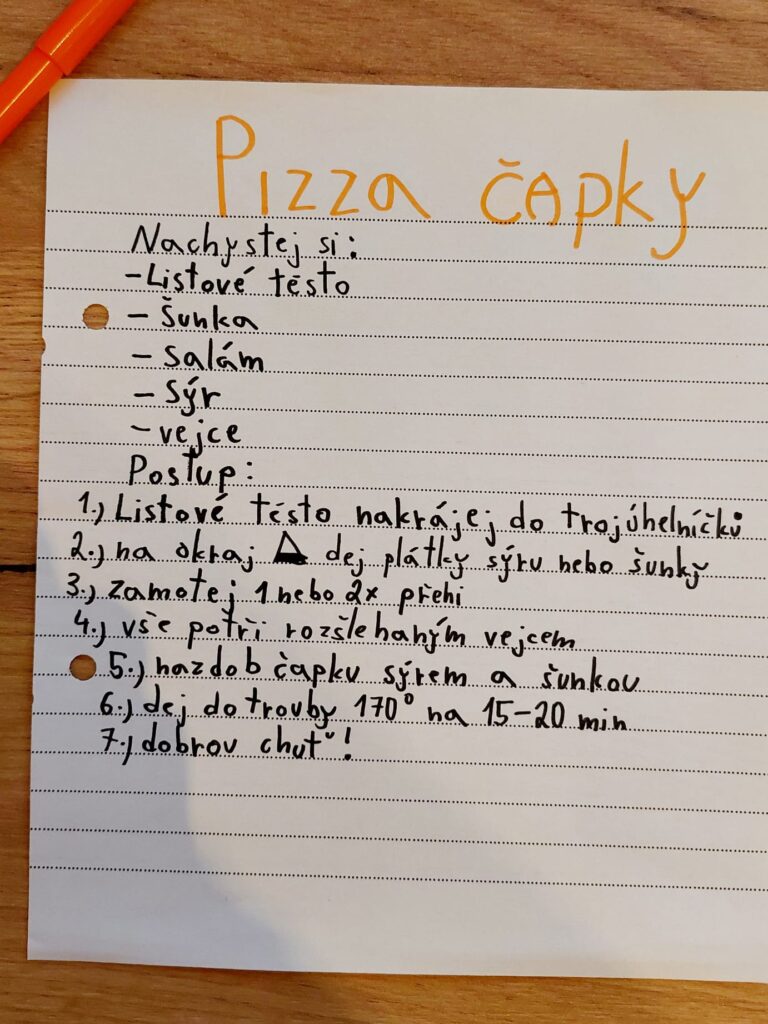 Pizza čapky
Nachystej si:
-Listové těsto
- Šunka
- Salám
- Sýr
-vejce
Postup:
1.) Listové těsto nakrájej do trojúhelníčků
2.) na okraj △ dej plátky sýru nebo šunky
3.) zamotej 1 nebo 2x přehi
4.) vše potři rozšlehaným vejcem
5.) nazdob čapku sýrem a šunkou
6.) dej do trouby 170° na 15-20 min
7.) dobrou chuť!